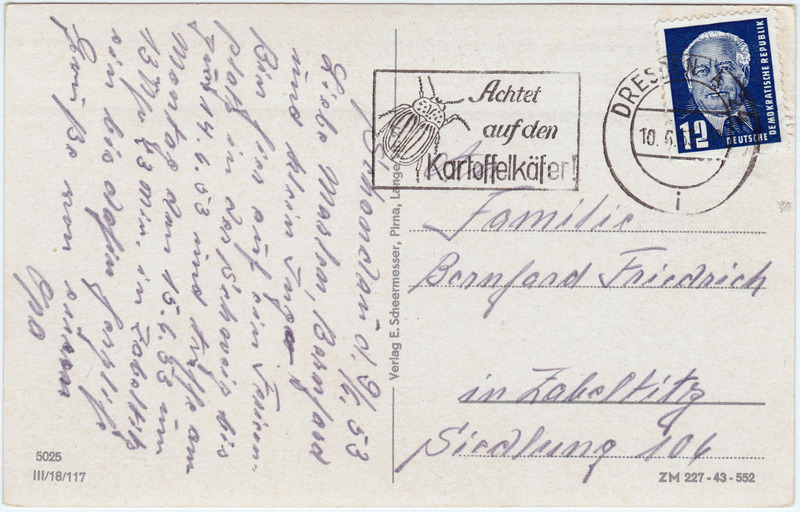 Schandau d. 9/6. 53
Liebe Bernhard
und klein Inge!
Bin hier auf ein Ferien-
platz in der Schweiz bis
zum 14.6.53 und treffe am
Montag den 15.6.53 um
13 Uhr 43 Min. in Zabeltitz
ein bis dahin herzliche
Grüße von eurem
Opa
5025
III/18/117
Verlag E. Scheermesser, Pirna, Lange
Achtet
auf den
Kartoffelkäfer!
DRESDEN
10. 6.
i
12
DEUTSCHE DEMOKRATISCHE REPUBLIK
Familie
Bernhard Friedrich
in Zabeltitz
Siedlung 106
ZM 227-43-552